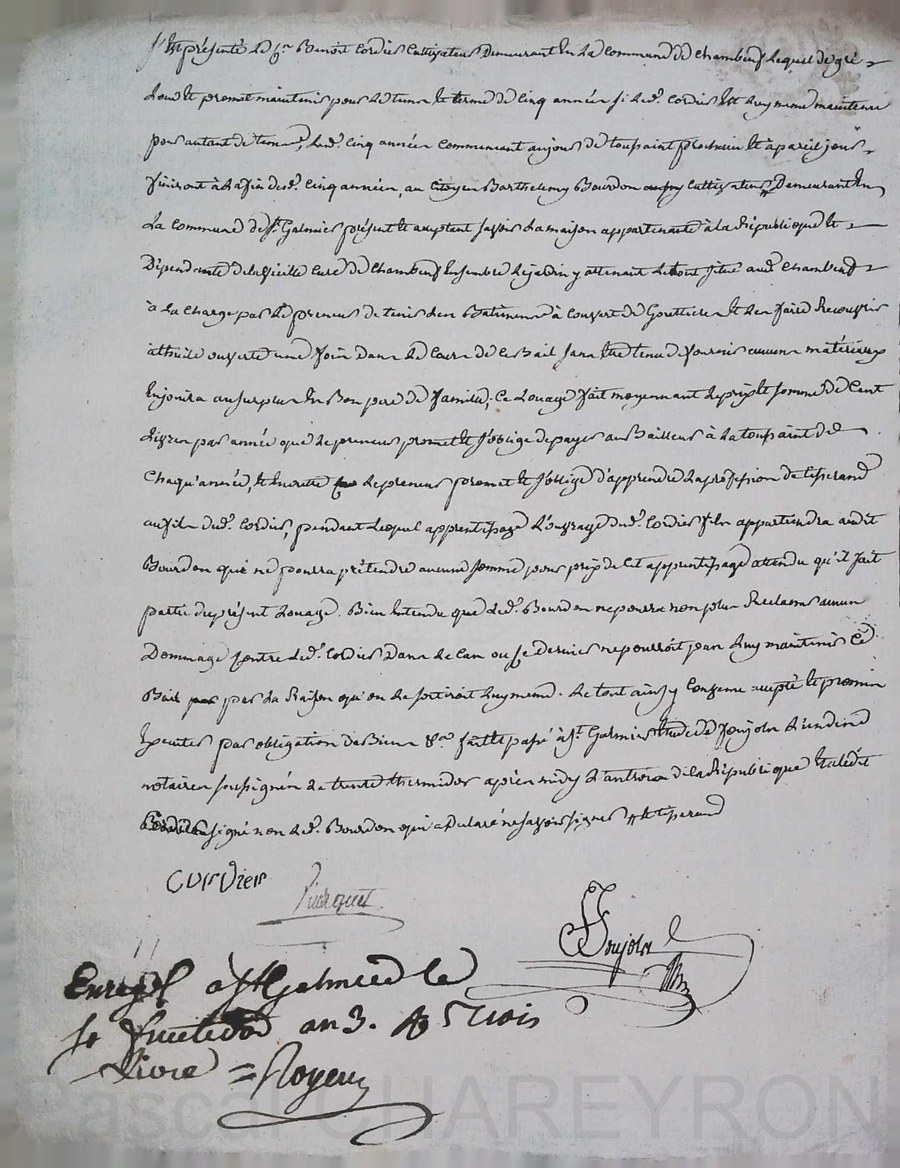 s'est présenté le Sr. Benoit Cordier Cultivateur Demeurant En La Commune de Chambeuf Lequel de gré
Loue et promet maintenir pour Le tems et terme de Cinq année si led. Cordier Est Luy meme maintenu
pour autant de tems, Lesd. Cinq année Commencant aujour de toussaint prochain Et à pareil jour
finiront à La fin desd. Cinq années, au Citoyen Barthelemy Bourdon Cultivateur Demeurant En
La Commune de St. Galmier présent et acceptant savoir La maison appartenante à la République et
Dépendante de la vieille Cure de Chambeuf Ensemble Le jardin y attenant Le tout situé aud. Chambeuf
à La Charge par Le preneur de tenir Les Batimens à Couvert de Gouttiere Et de Les faire Recouvrir
à thuile ouverte une fois Dans Le Cours de Ce Bail sans Etre tenu de fournir aucuns matériaux
En jouira au surplus En Bon pere de famille; Ce Louage fait moyennant Le prix Et somme de Cent
Livres par année que Le preneur promet Et s'oblige de payer au Bailleur à La toussaint de
Chaqu'année, Et Ensuitte Le preneur promet Et s'oblige d'apprendre La profession de tisserand
au fils dud. Cordier, pendant Lequel apprentissage L'ouvrage dud. Cordier fils appartiendra audit
Bourdon qui ne pourra prétendre aucune somme pour prix de Cet apprentissage attendu qu'il fait
partie du présent Louage. Bien Entendu que Led. Bourdon ne pourra non plus Reclamer aucun
Dommage Contre Led. Cordier Dans Le Cas ou Ce Dernier ne pourroit pas Luy maintenir Ce
Bail par La Raison qu'on Le sortiroit Luy meme. Le tout ainsy Convenu accepté Et promis
Executer par obligation de Biens &ca. fait Et passé à St. Galmier Etude de Poujola L'un des
notaires soussignés Le trente thermidor après midy L'an trois de la République Et a Ledit
Cordier signé non Led. Bourdon qui a Declaré ne savoir signer # Et tisserand
Curdier
Poujola
Enregt. à St Galmier le
fructidor an 3. R trois
Livre = Royeu
Pascal CHAREYRON